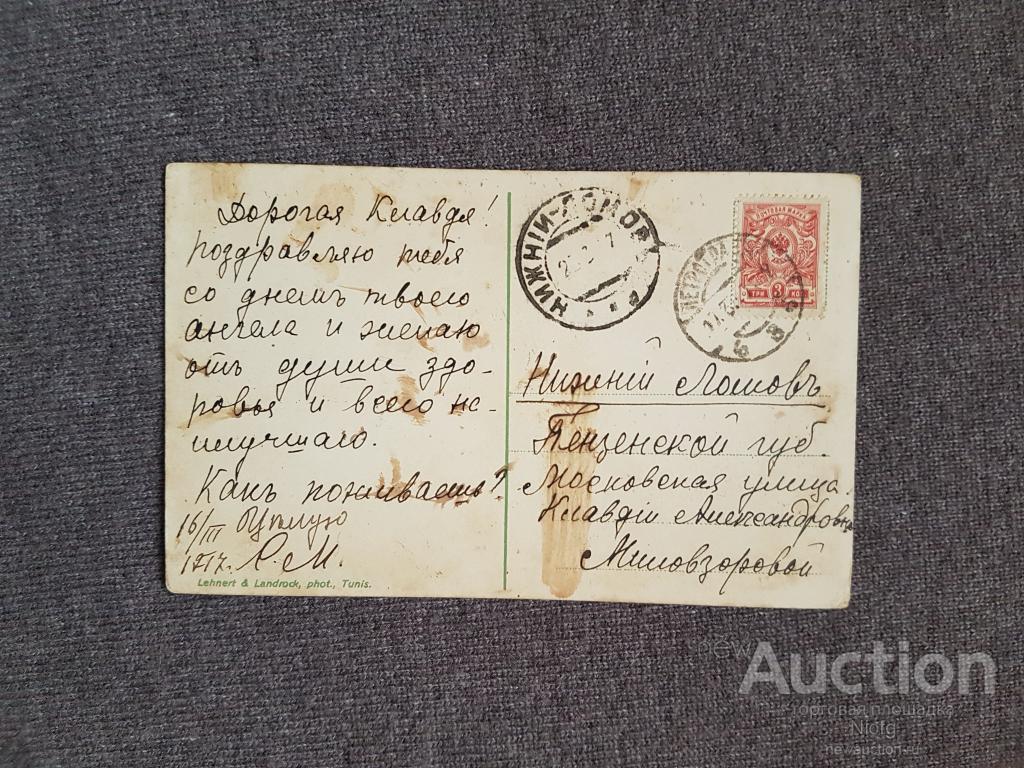 Дорогая Клавдя!
поздравляю тебя
со днемъ твоего
ангела и желаю
отъ души здо-
ровья и всего на-
илучшаго.
Какъ поживаешь?
16/III Цѣлую
1917. А. М.
Lehnert & Landrock, phot., Tunis.
НИЖНІЙ-ЛОМОВ
ПОЧТОВАЯ МАРКА
ТРИ 3 КОП
ПЕТРОГРАД
Нижній Ломовъ
Пензенской губ.
Московская улица
Клавдіи Александровнѣ
Миловзоровой
new
Auction
торговая площадка
Niofg
newauction.ru